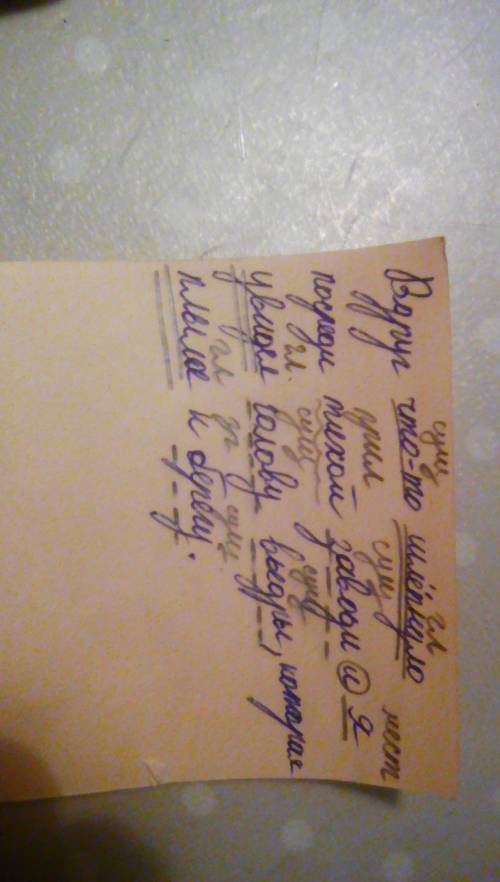 сущ гл
Вдруг что-то шлёпнуло
прил сущ мест
посреди тихой заводи и я
гл. сущ сущ
увидел голову выдры, которая
гл пр сущ.
плыла к берегу.